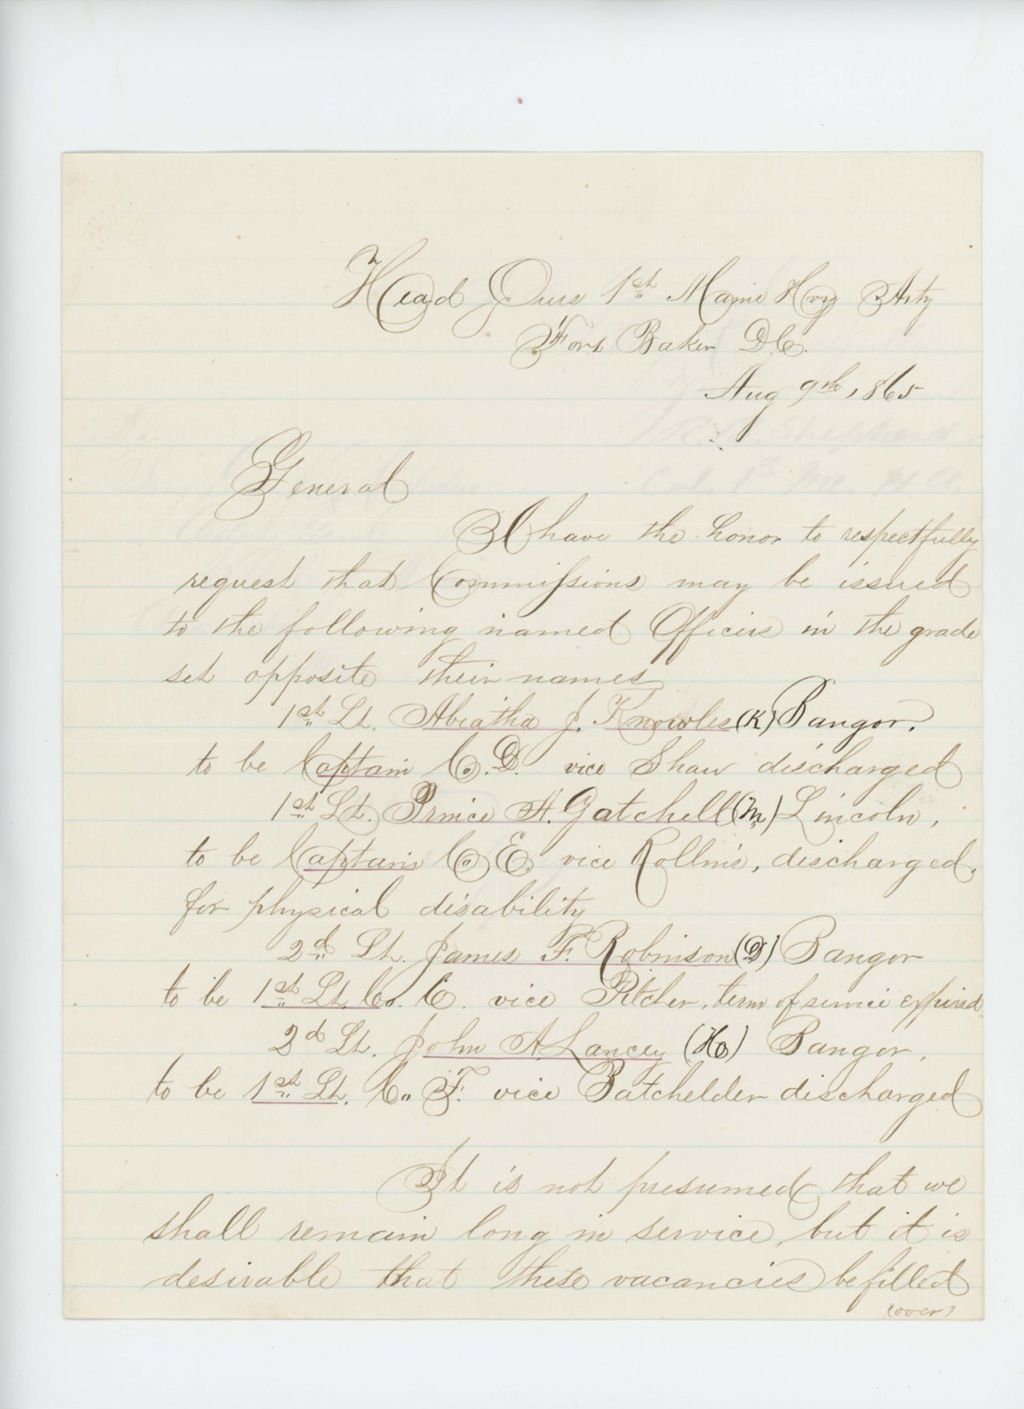 Head Qurs 1st Maine Hvy Arty
Fort Baker D.C.
Aug 9th, 1865
General
I have the honor to respectfully
request that Commissions may be issued
to the following named Officers in the grade
set opposite their names
1st Lt. Abiatha J. Knowles (K) Bangor.
to be Captain Co. D. vice Shaw discharged
1st Lt. Prince A. Gatchell (M) Lincoln,
to be Captain Co E. vice Rollins, discharged.
for physical disability
2d Lt. James F. Robinson (D) Bangor
to be 1st Lt. Co. C. vice Pitcher, term of service expired.
2d Lt. John A. Lancey (H) Bangor,
to be 1st Lt. Co. F. vice Batchelder discharged
It is not presumed that we
shall remain long in service, but it is
desirable that these vacancies be filled
(over)